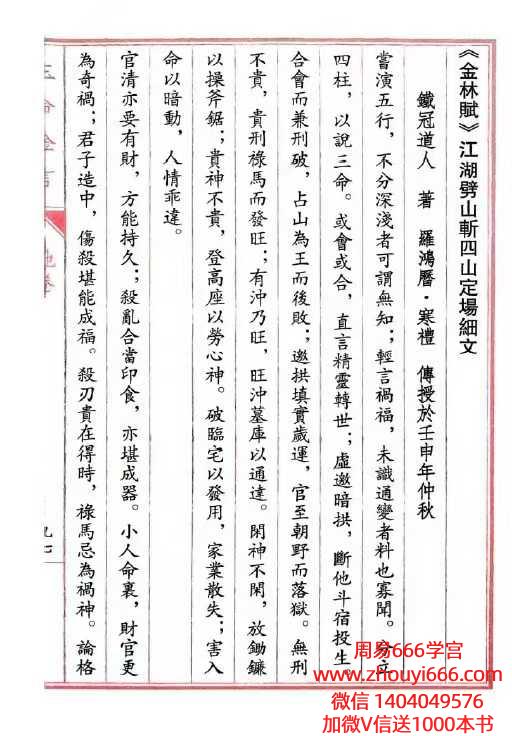 《金林賦》江湖劈山斬四山定場細文
鐵冠道人　著　羅鴻曆·寒禮　傳授於壬申年仲秋
嘗演五行，不分深淺者可謂無知；輕言禍福，未識通變者料也寡聞。分立
四柱，以說三命。或會或合，直言精靈轉世；虛邀暗拱，斷他斗宿投生
合會而兼刑破，占山為王而後敗；邀拱填實歲運，官至朝野而落獄。無刑
不貴，貴刑祿馬而發旺；有沖乃旺，旺沖墓庫以通達。閑神不閑，放鋤鐮
以操斧鋸；貴神不貴，登高座以勞心神。破臨宅以發用，家業散失；害入
命以暗動，人情乖違。
官清亦要有財，方能持久；殺亂合當印食，亦堪成器。小人命裏，財官更
為奇禍；君子造中，傷殺堪能成福。殺刃貴在得時，祿馬忌為禍神。論格
九七
周易666学宫
www.zhouyi666.com
微信 1404049576
加微V信送1000本书